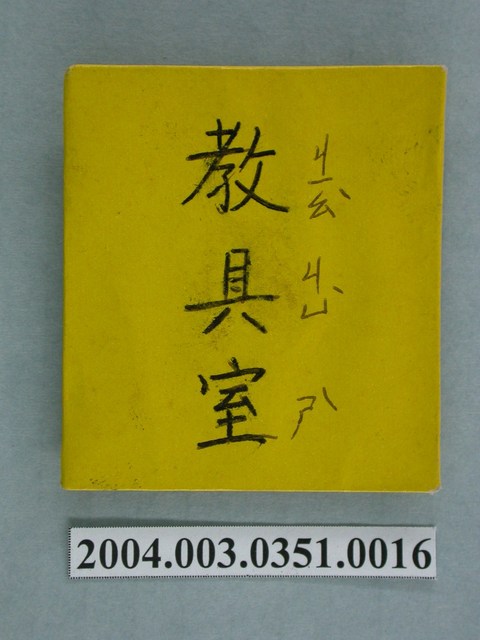 教具室
ㄐㄧㄠˋ ㄐㄩˋ ㄕˋ
2004.003.0351.0016